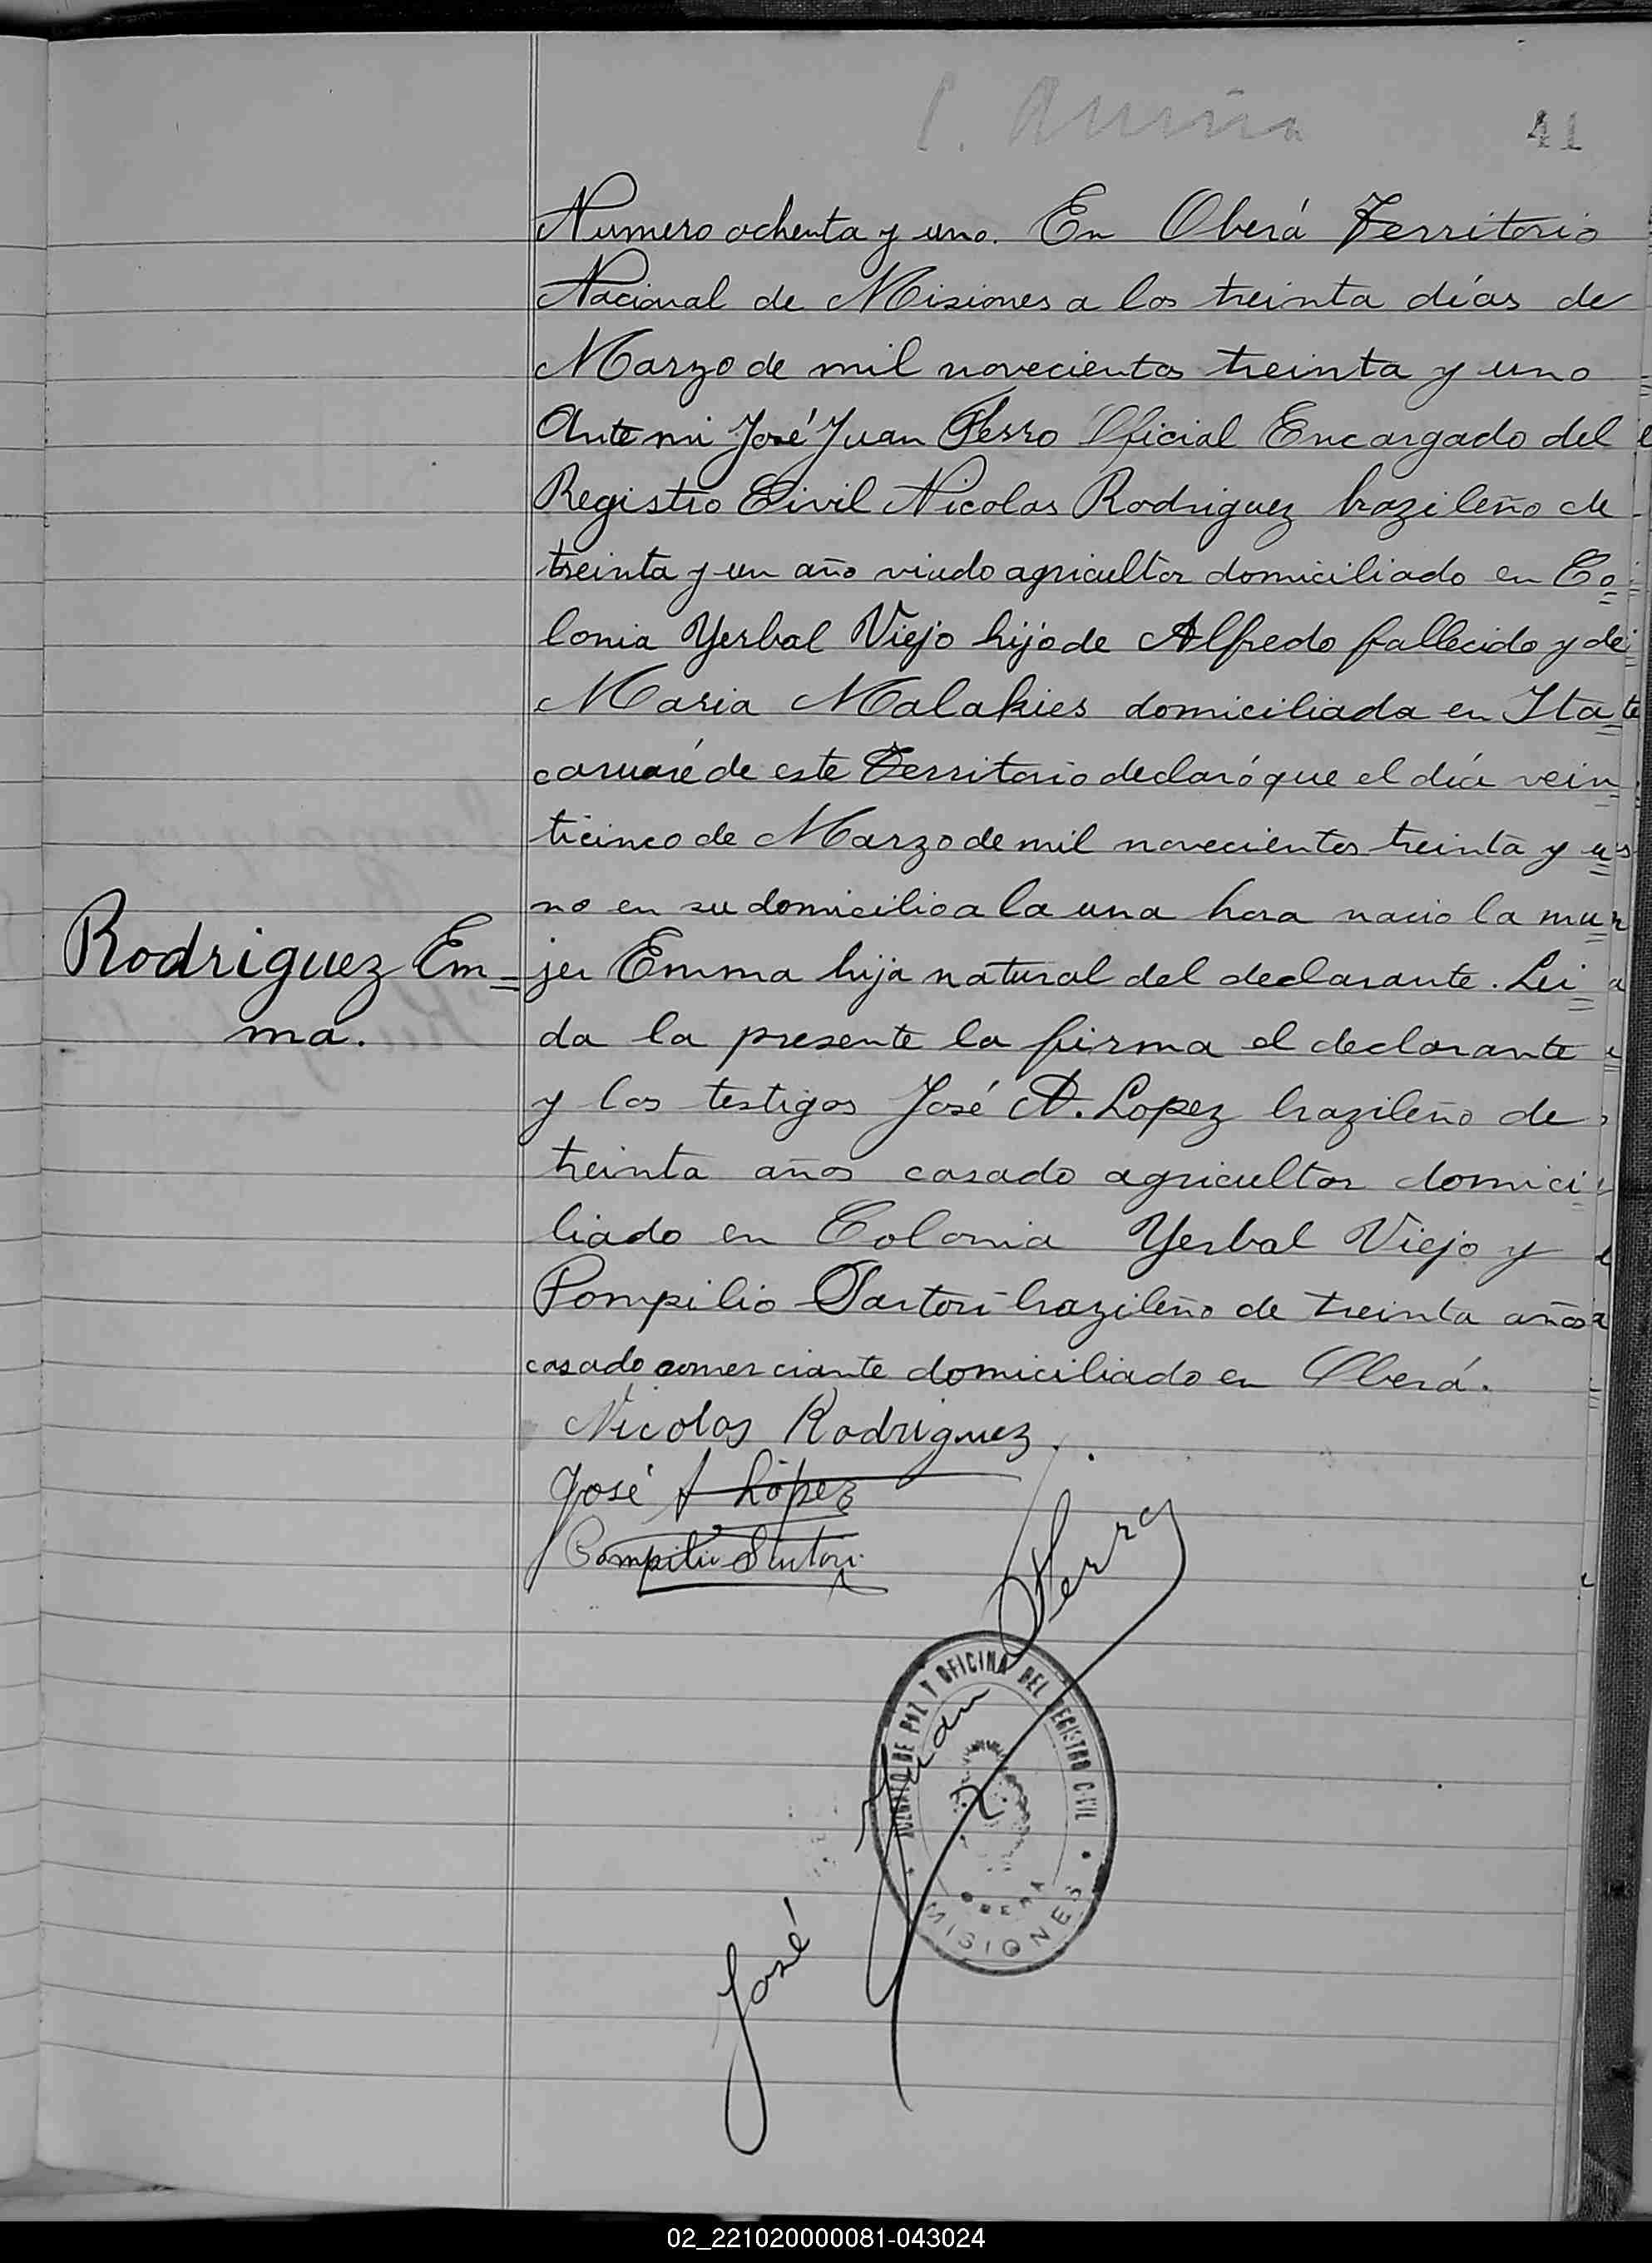 41
Numero ochenta y uno. En Oberá Territorio
Nacional de Misiones a los treinta días de
Marzo de mil novecientos treinta y uno
Ante mi José Juan Ferro Oficial Encargado del
Registro Civil Nicolas Rodriguez brazileño de
treinta y un año viudo agricultor domiciliado en Co=
lonia Yerbal Viejo hijo de Alfredo fallecido y de
Maria Malakies domiciliada en Ita=
caruaré de este Territorio declaró que el día vein=
ticinco de Marzo de mil novecientos treinta y u=
no en su domicilio a la una hora nacio la mu=
Rodriguez Em=
ma.
jer Emma hija natural del declarante. Lei=
da la presente la firma el declarante
y los testigos José A. Lopez brazileño de
treinta años casado agricultor domici=
liado en Colonia Yerbal Viejo y
Pompilio Sartori brazileño de treinta años
casado comerciante domiciliado en Oberá.
Nicolas Rodriguez.
José A López
Pompilio Sartori
José Juan Ferro
JUZGADO DE PAZ Y OFICINA DEL REGISTRO CIVIL
OBERA
MISIONES
02_221020000081-043024